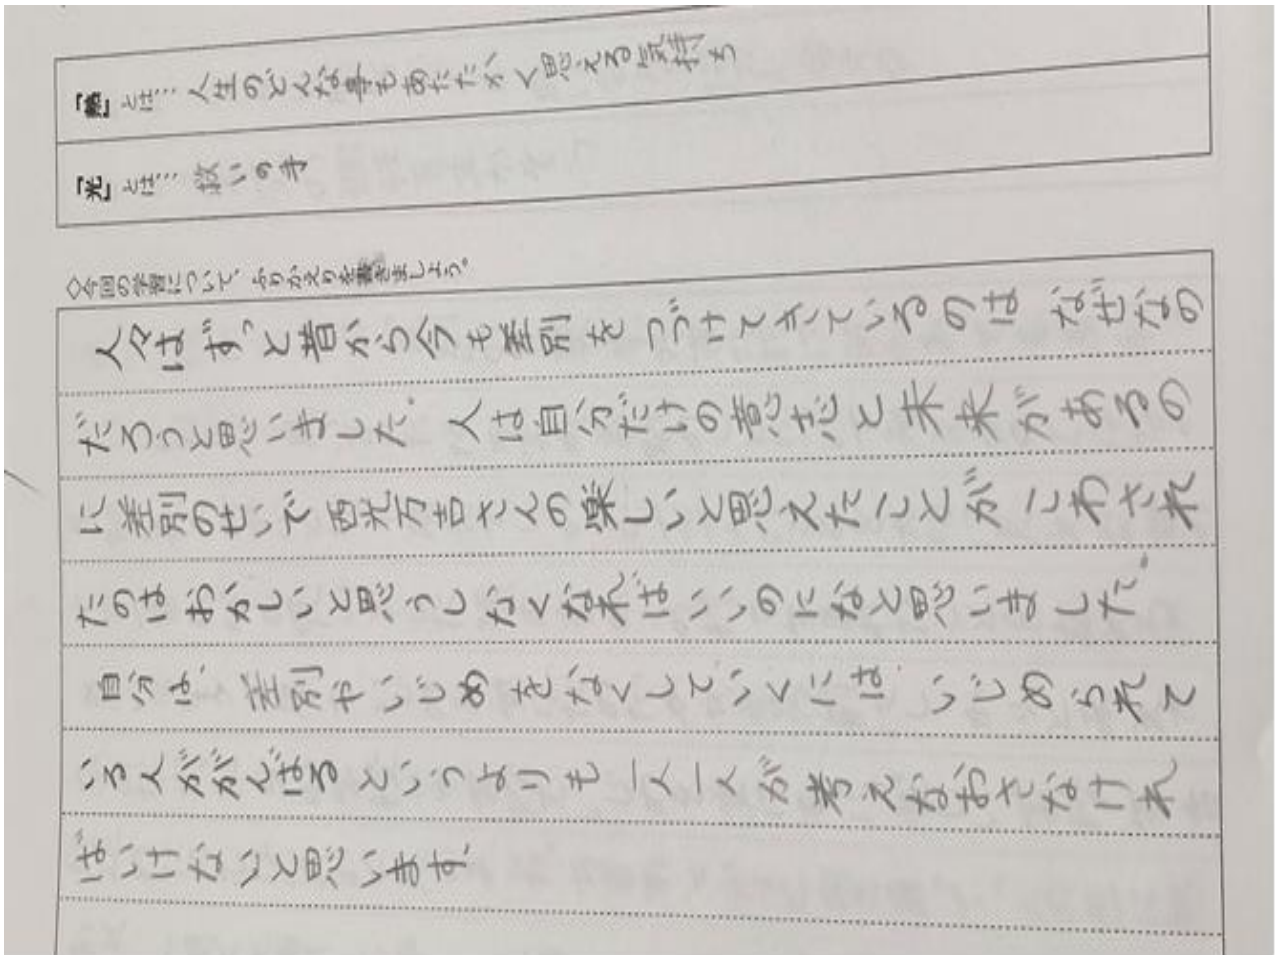 「熱」とは… 人生のどんな事もあたたかく思える気持ち
「光」とは… 救いの手
◇今回の学習について、ふりかえりを書きましょう。
人々はずっと昔から今も差別をつづけてきているのは なぜなの
だろうと思いました。人は自分だけの意志と未来があるの
に差別のせいで西光万吉さんの楽しいと思えたことがこわされ
たのはおかしいと思うしなくなればいいのになと思いました。
自分は、差別やいじめをなくしていくには、いじめられて
いる人ががんばるというよりも一人一人が考えなおさなけれ
ばいけないと思います。